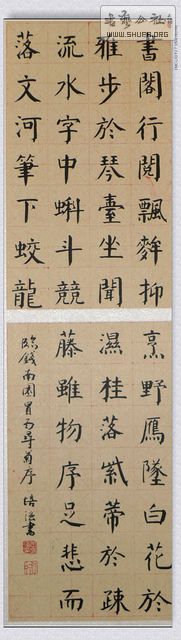 書閣行閱飄抑
雅步於琴臺坐聞
流水字中蝌斗競
落文河筆下蛟龍
烹野鴈墜白花於
濕桂落紫蒂於疎
藤雖物序足悲而
臨錢南園冒雨尋菊序 培書
書藝公社